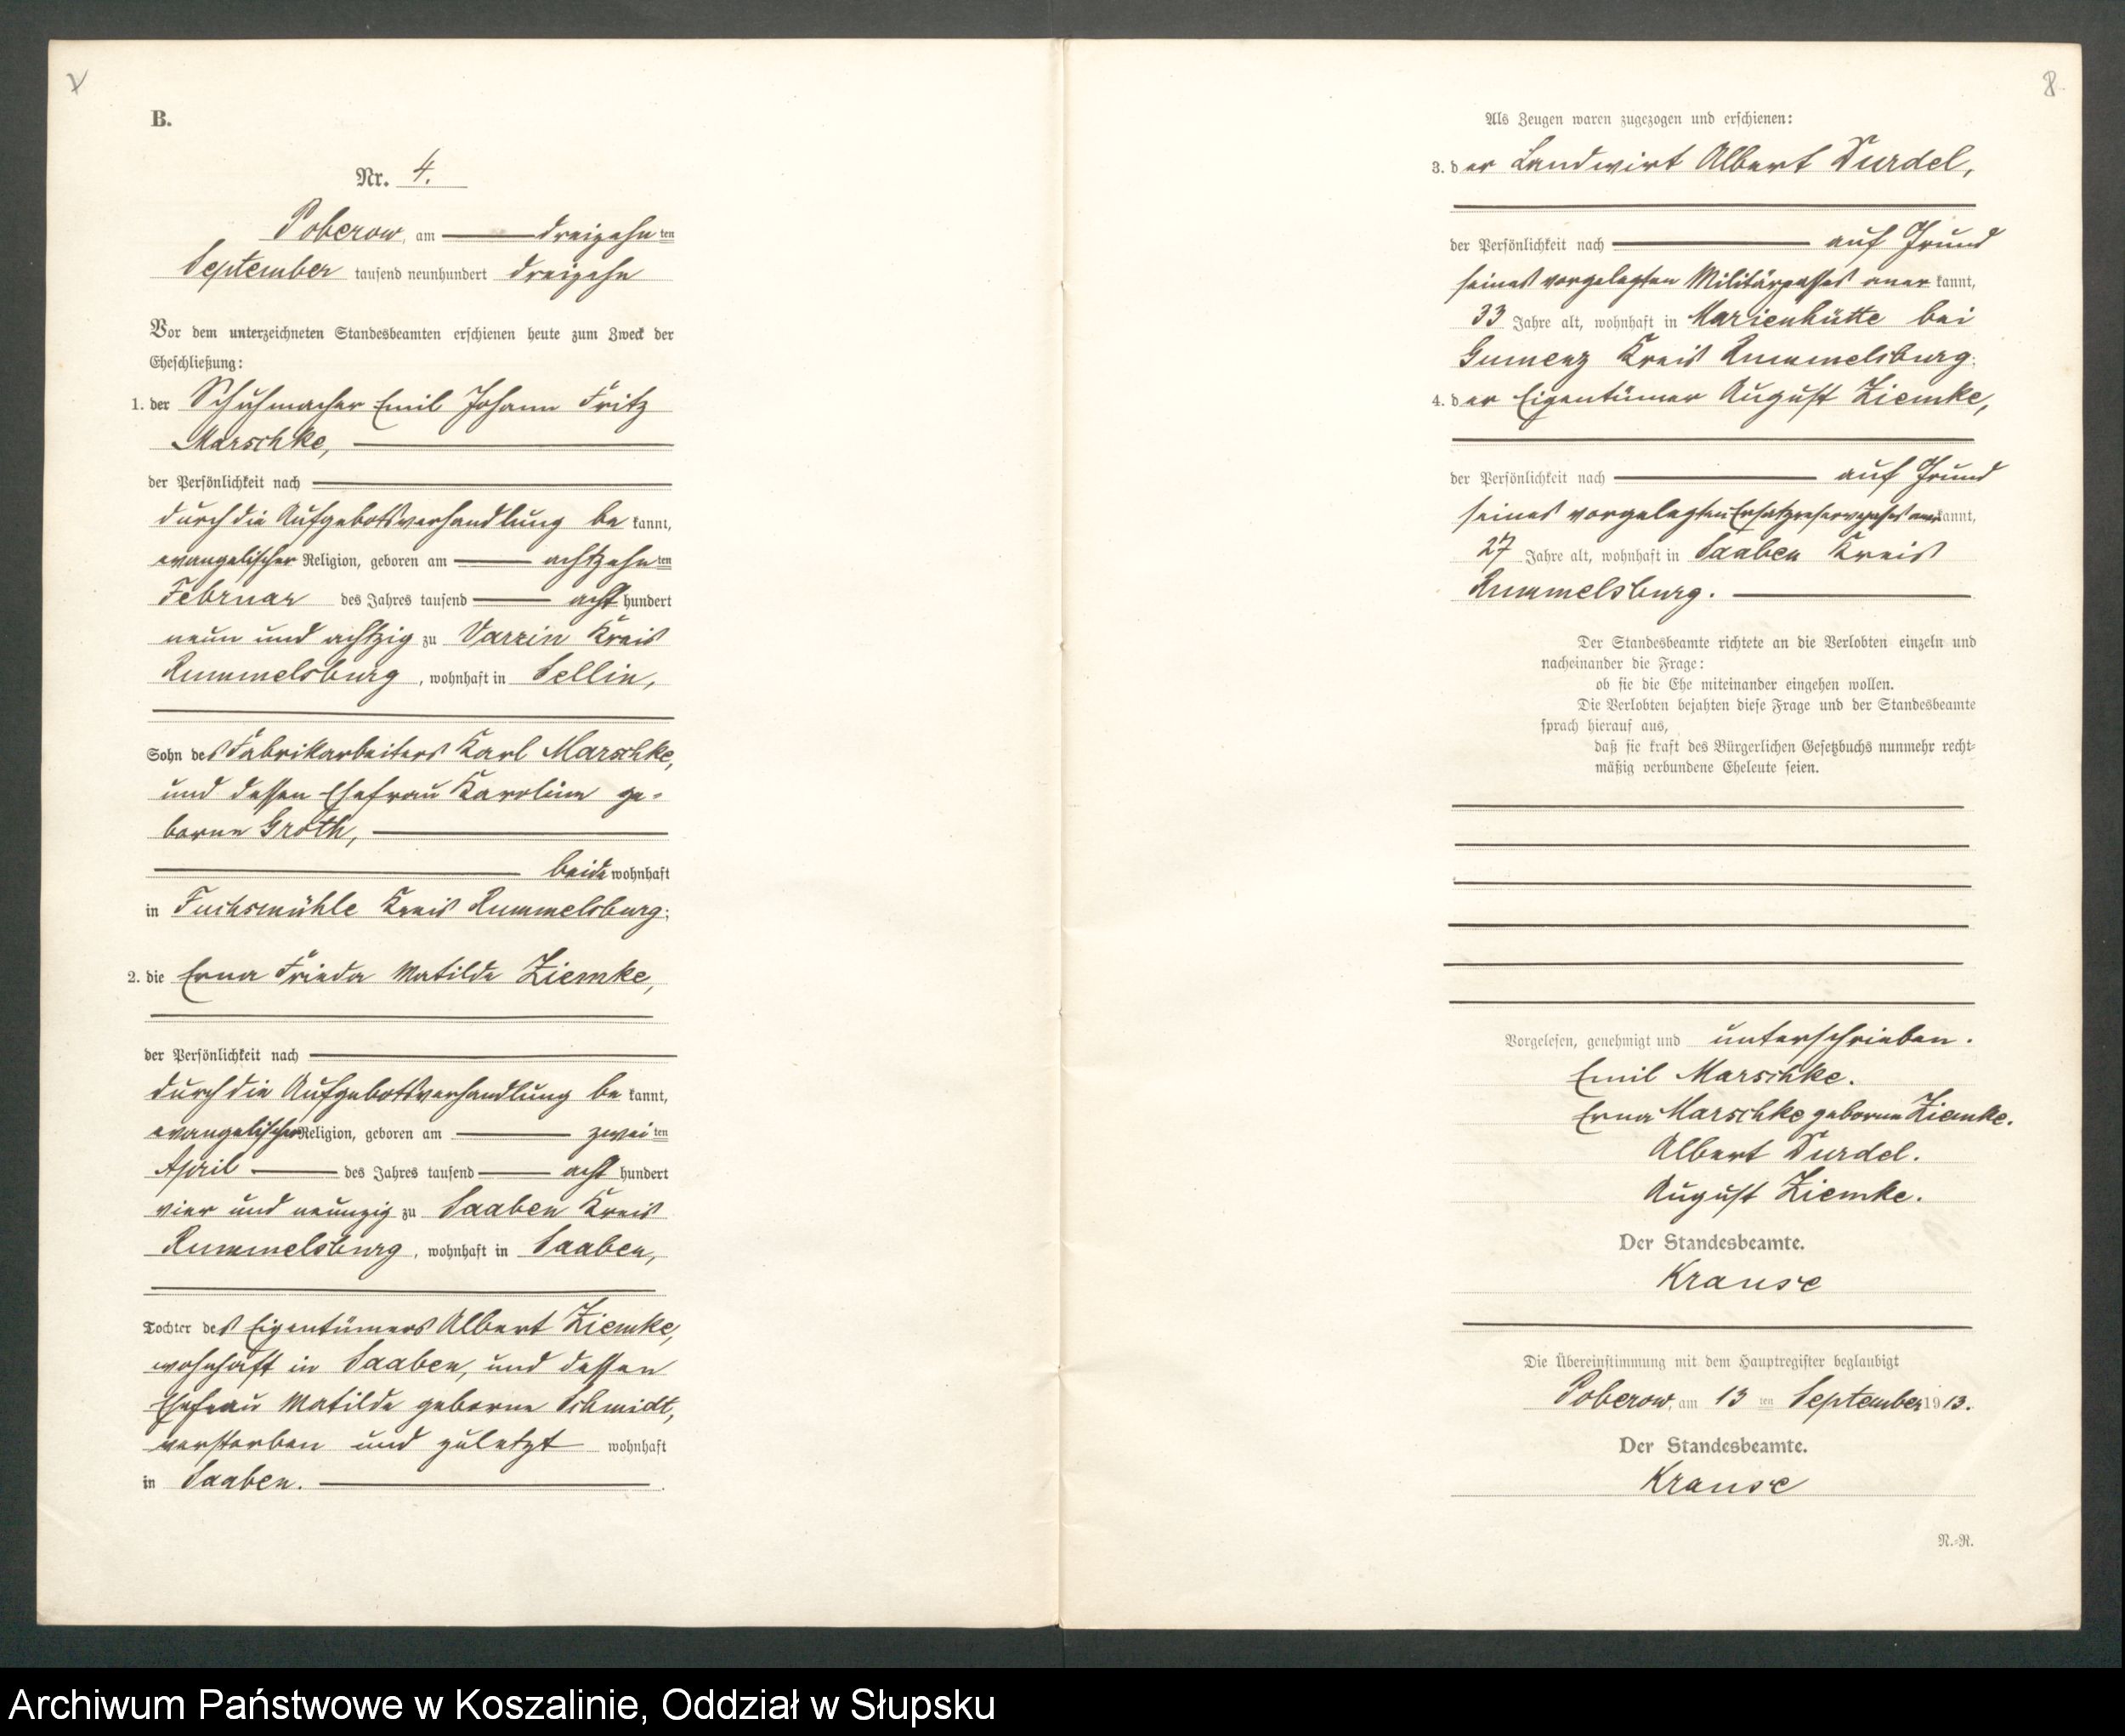 B.
Nr. 4.
Poberow, am dreizehnten
September tausend neunhundert dreizehn
Vor dem unterzeichneten Standesbeamten erschienen heute zum Zweck der
Eheschließung:
1. der Schuhmacher Emil Johann Fritz
Marschke,
der Persönlichkeit nach
durch die Aufgebotsverhandlung be kannt,
evangelischer Religion, geboren am achtzehnten
Februar des Jahres tausend acht hundert
neun und achtzig zu Varzin Kreis
Rummelsburg, wohnhaft in Sellin,
Sohn des Fabrikarbeiters Karl Marschke,
und dessen Ehefrau Karoline ge-
borne Groth,
beide wohnhaft
in Fuchsmühle Kreis Rummelsburg;
2. die Erna Frieda Matilde Ziemke,
der Persönlichkeit nach
durch die Aufgebotsverhandlung be kannt,
evangelischer Religion, geboren am zweiten
April des Jahres tausend acht hundert
vier und neunzig zu Saaben Kreis
Rummelsburg, wohnhaft in Saaben,
Tochter des Eigentümers Albert Ziemke,
wohnhaft in Saaben, und dessen
Ehefrau Matilde geborne Schmidt,
verstorben und zuletzt wohnhaft
in Saaben.
8
Als Zeugen waren zugezogen und erschienen:
3. der Landwirt Albert Durdel,
der Persönlichkeit nach auf Grund
seines vorgelegten Militärpasses aner kannt,
33 Jahre alt, wohnhaft in Marienhütte bei
Gumenz Kreis Rummelsburg;
4. der Eigentümer August Ziemke,
der Persönlichkeit nach auf Grund
seines vorgelegten Ersatzreservepasses anerkannt,
27 Jahre alt, wohnhaft in Saaben Kreis
Rummelsburg.
Der Standesbeamte richtete an die Verlobten einzeln und
nacheinander die Frage:
ob sie die Ehe miteinander eingehen wollen.
Die Verlobten bejahten diese Frage und der Standesbeamte
sprach hierauf aus,
daß sie kraft des Bürgerlichen Gesetzbuchs nunmehr recht-
mäßig verbundene Eheleute seien.
Vorgelesen, genehmigt und unterschrieben.
Emil Marschke.
Erna Marschke geborne Ziemke.
Albert Durdel.
August Ziemke.
Der Standesbeamte.
Krause
Die Übereinstimmung mit dem Hauptregister beglaubigt
Poberow, am 13 ten September 1913.
Der Standesbeamte.
Krause
N.-R.
Archiwum Państwowe w Koszalinie, Oddział w Słupsku